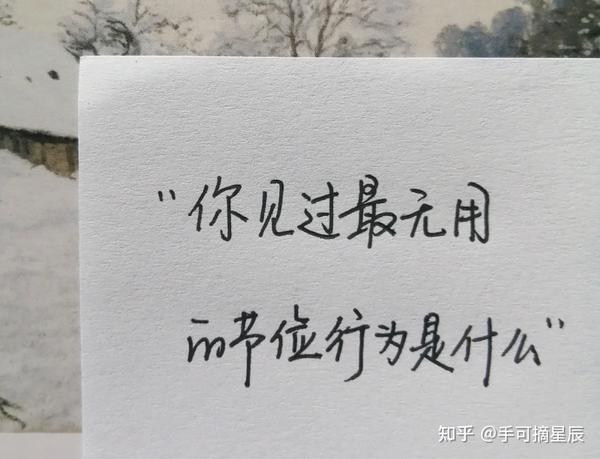 “你见过最无用
的节俭行为是什么”
知乎 @手可摘星辰